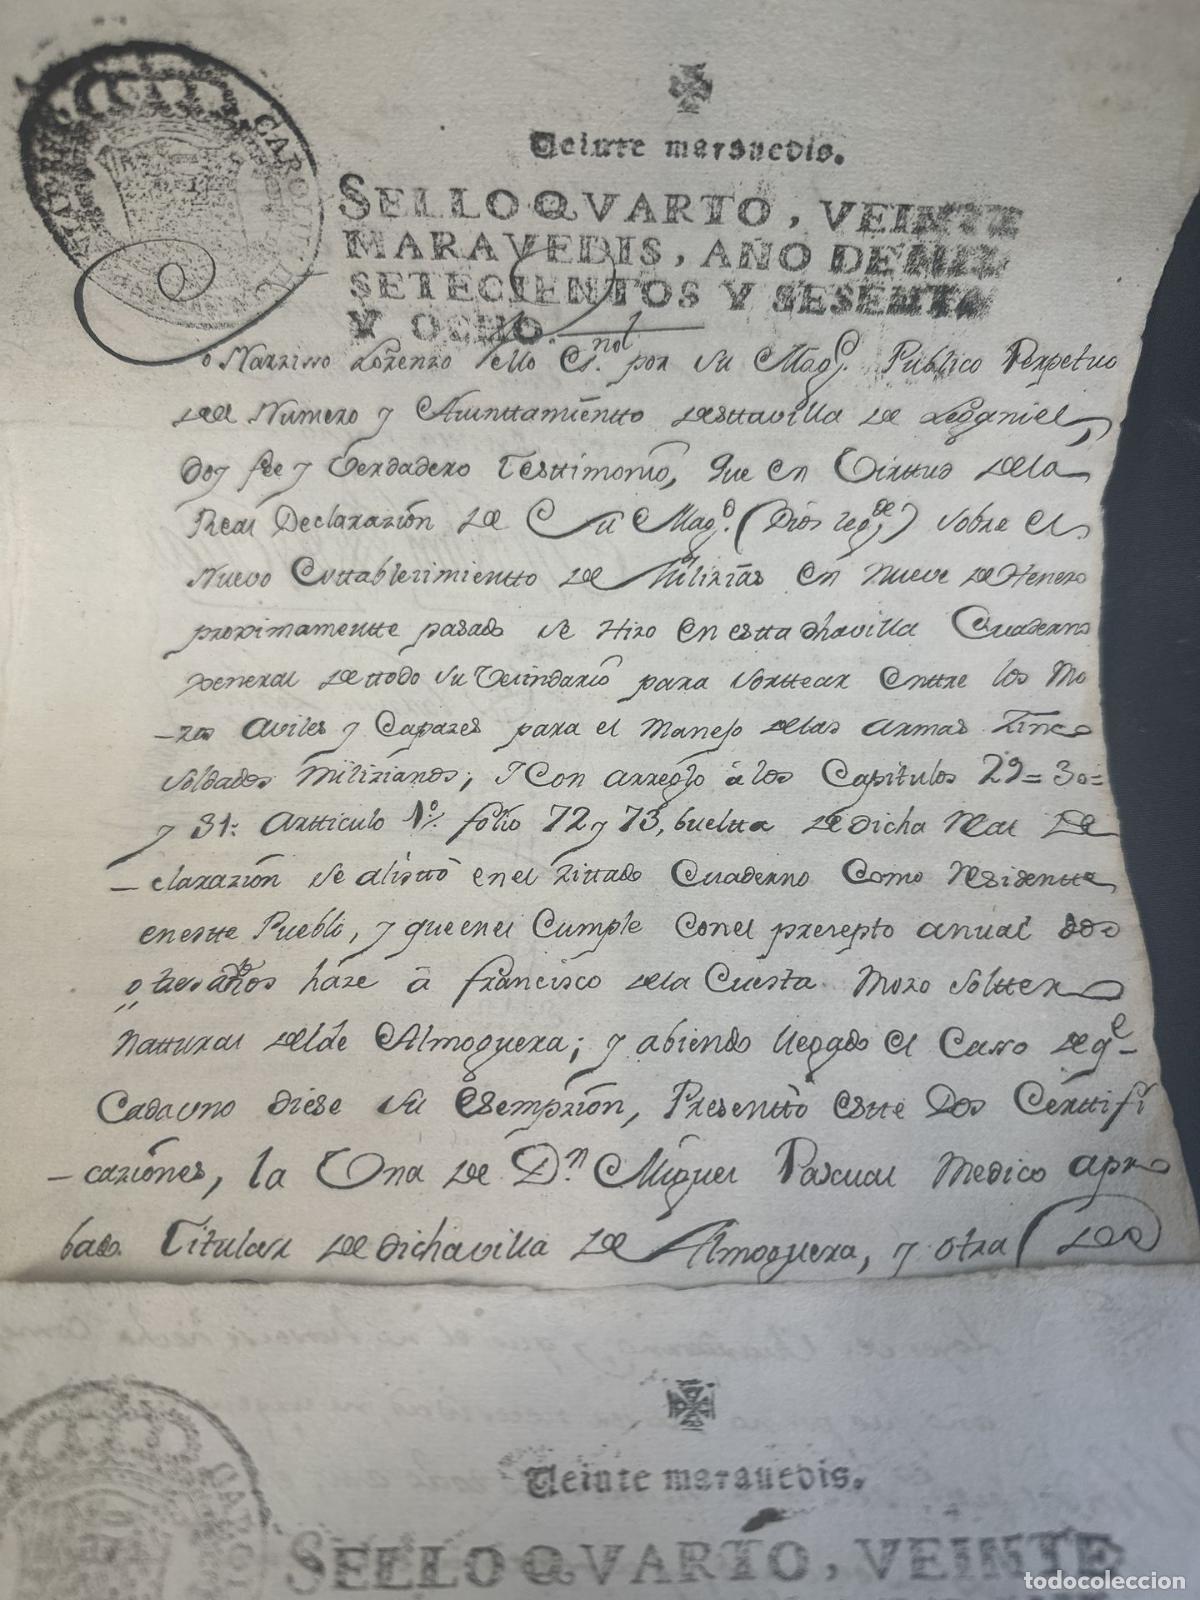 Veinte marauedis.
SELLO QVARTO, VEINTE
MARAVEDIS, AÑO DE MIL
SETECIENTOS Y SESENTA
Y OCHO.
Narziso Lorenzo tello Esno. por su Magd. Publico Perpetuo
del Numero y Aiunttamientto destta villa de Leganiel,
doy fee y Verdadero Testtimonio, que en Virttud de la
Real Declarazion de Su Magd. (Dios legde.) sobre el
Nuevo Esttablecimientto de Milizias en nueve de Henero
proximamentte pasado se Hizo en estta dha villa Cuaderno
General de ttodo su Vecindario para sorttear enttre los Mo
-zos aviles y Capazes para el Manejo de las armas Zinco
Soldados Milizianos; I Con arreglo à los Capitulos 29= 30=
y 31: Artticulo 1º. folio 72 y 73, buelta de dicha Real De
-clarazion se alistto en el Zittado Cuaderno Como Residentte
en estte Pueblo, y que en el Cumple con el prezepto anual dos
o tres años haze à Francisco de la Cuesta Mozo Soltter
Nattural de la de Almoguera; y abiendo llegado el Casso de qe
Cada uno diese su Esempzion, Presenttò estte Dos Certtifi
-caziones, la Una de Dn. Miguel Pascual Medico apro
bado Titular de dicha villa de Almoguera, y otra de
Veinte marauedis.
SELLO QVARTO, VEINTE
CAROL
todocoleccion